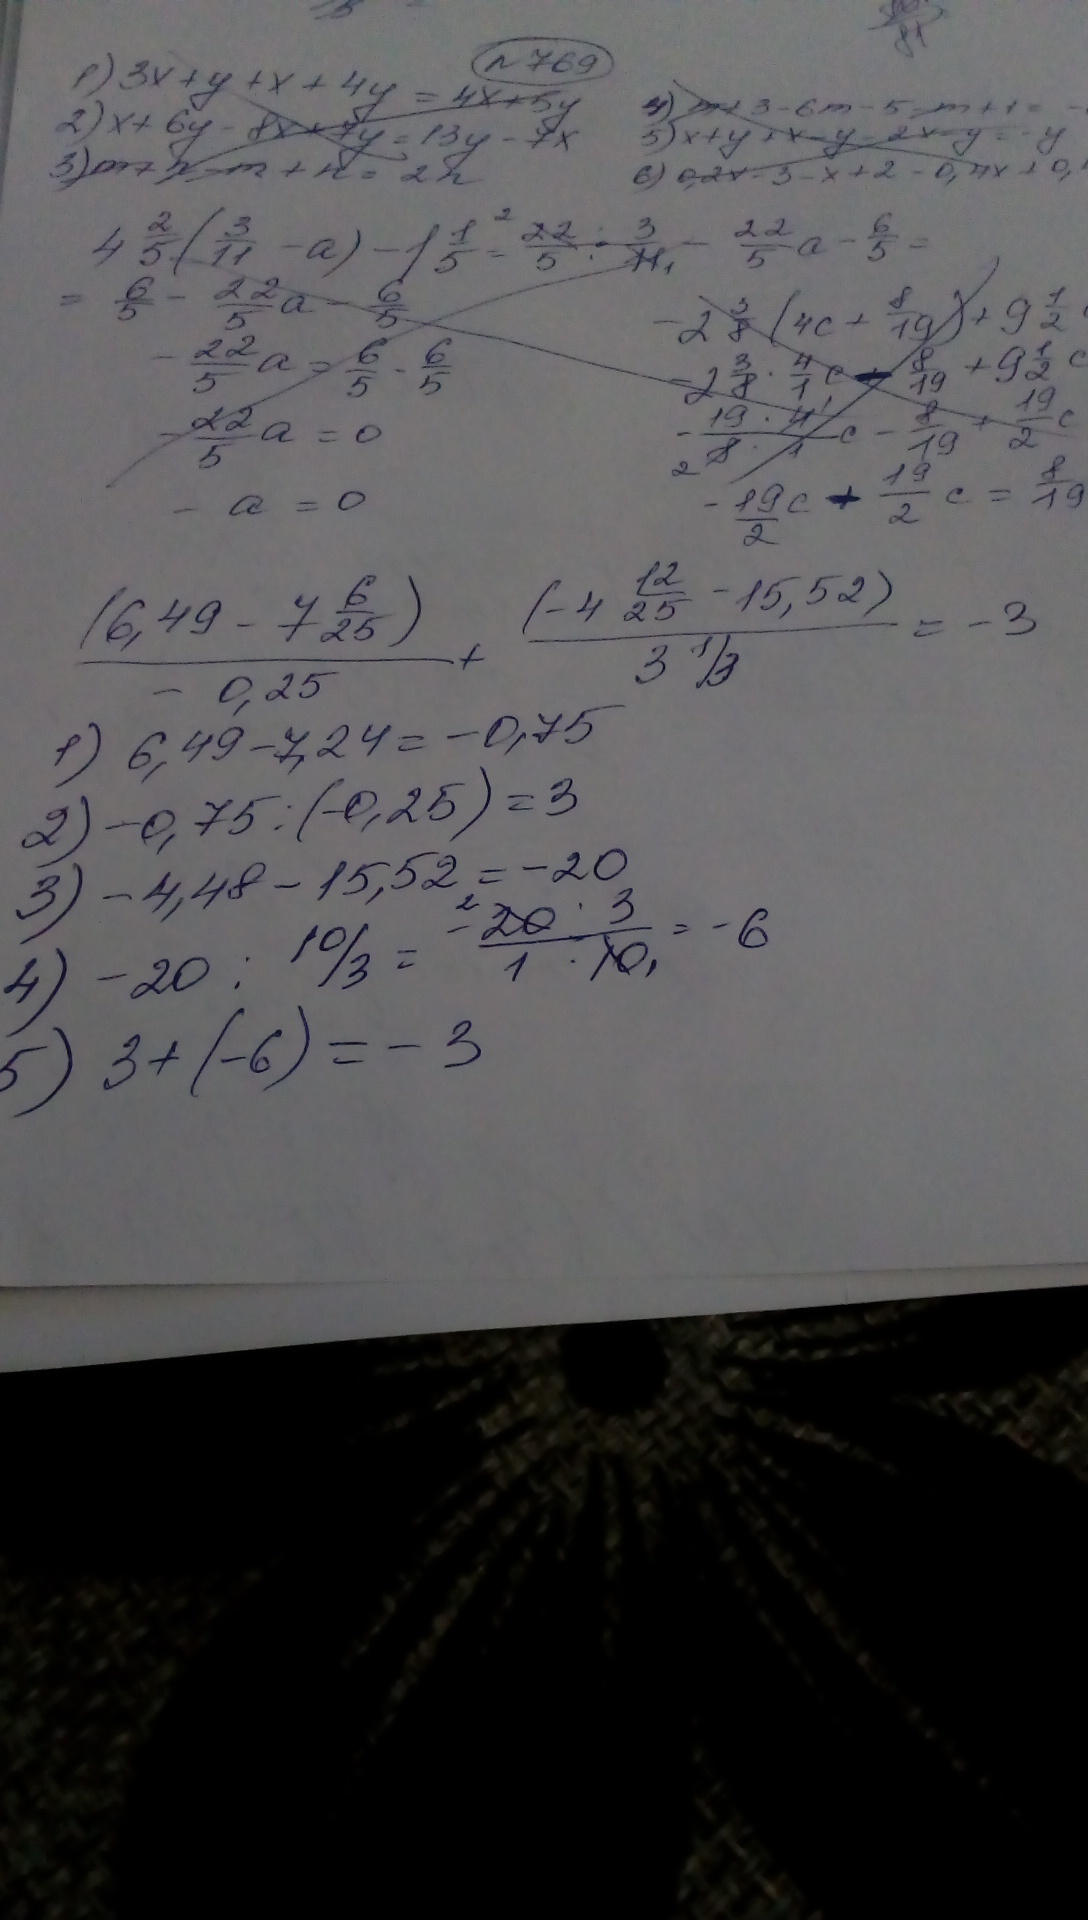 №769
1) 3x+y+x+4y=4x+5y
2) x+6y-8x+7y=13y-7x
3) m+n-m+n=2n
4) m+3-6m-5-m+1=-
5) x+y+x-y-2x-y=-y
6) 0,2x-3-x+2-0,4x+0,
4 2/5 (3/11 - a) - 1 1/5 = 22/5 · 3/11 - 22/5 a - 6/5 =
= 6/5 - 22/5 a - 6/5
- 22/5 a = 6/5 - 6/5
- 22/5 a = 0
- a = 0
- 2 3/8 (4c + 8/19) + 9 1/2 c
= 2 3/8 · 4/1 c - 8/19 + 9 1/2 c
- 19·4/8·1 c - 8/19 + 19/2 c
- 19/2 c + 19/2 c = 8/19
(6,49 - 7 6/25)/-0,25 + (-4 12/25 - 15,52)/3 1/3 = -3
1) 6,49-7,24=-0,75
2) -0,75:(-0,25)=3
3) -4,48-15,52=-20
4) -20 : 10/3 = -20·3/1·10 = -6
5) 3+(-6)=-3